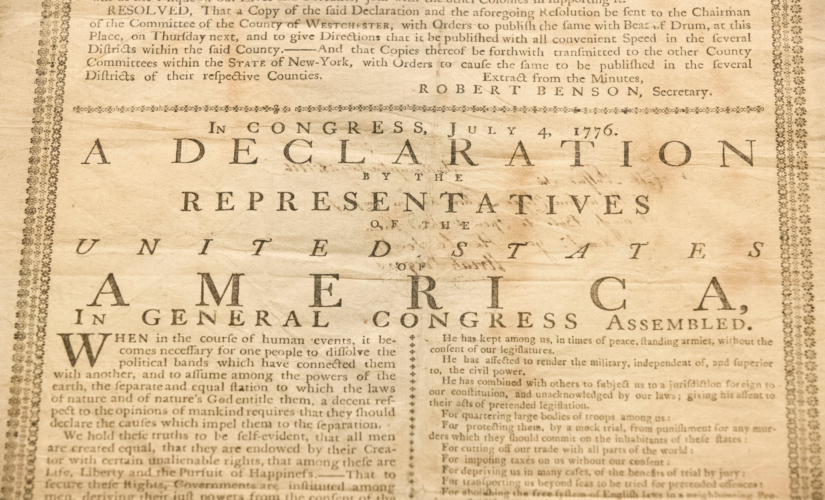 RESOLVED, That a Copy of the said Declaration and the aforegoing Resolution be sent to the Chairman
of the Committee of the County of WESTCHESTER, with Orders to publish the same with Beat of Drum, at this
Place, on Thursday next, and to give Directions that it be published with all convenient Speed in the several
Districts within the said County.——And that Copies thereof be forthwith tranſmitted to the other County
Committees within the STATE of New-York, with Orders to cauſe the ſame to be publiſhed in the ſeveral
Districts of their reſpective Counties.
Extract from the Minutes,
ROBERT BENSON, Secretary.
IN CONGRESS, JULY 4, 1776.
A DECLARATION
BY THE
REPRESENTATIVES
OF THE
UNITED STATES
OF
AMERICA,
IN GENERAL CONGRESS ASSEMBLED.
WHEN in the courſe of human events, it be-
comes neceſſary for one people to diſſolve the
political bands which have connected them
with another, and to aſſume among the powers of the
earth, the ſeparate and equal ſtation to which the laws
of nature and of nature's God entitle them, a decent reſ-
pect to the opinions of mankind requires that they ſhould
declare the cauſes which impel them to the ſeparation.
We hold theſe truths to be ſelf-evident, that all men
are created equal, that they are endowed by their Crea-
tor with certain unalienable rights, that among theſe are
Life, Liberty and the Purſuit of Happineſs.——That to
ſecure theſe Rights, Governments are inſtituted among
men, deriving their juſt powers from the conſent of the
He has kept among us, in times of peace, ſtanding armies, without the
conſent of our legiſlatures.
He has affected to render the military, independent of, and ſuperior
to, the civil power.
He has combined with others to ſubject us to a juriſdiction foreign to
our conſtitution, and unacknowledged by our laws; giving his aſſent to
their acts of pretended legiſlation.
For quartering large bodies of troops among us:
For protecting them, by a mock trial, from puniſhment for any mur-
ders which they ſhould commit on the inhabitants of theſe ſtates:
For cutting off our trade with all parts of the world:
For impoſing taxes on us without our conſent:
For depriving us in many caſes, of the benefits of trial by jury:
For tranſporting us beyond ſeas to be tried for pretended offences:
For aboliſhing the free ſyſtem of Engliſh laws in a neighbouring